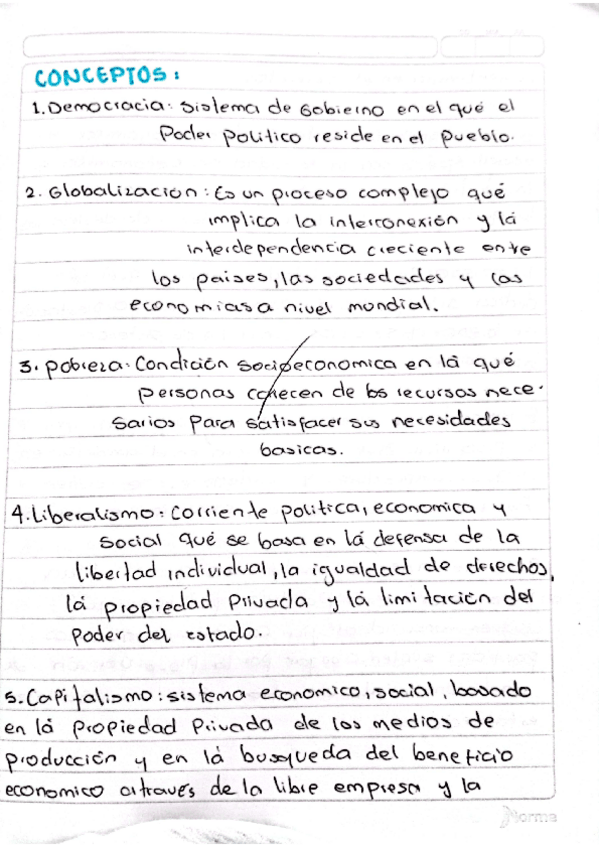 CONCEPTOS:
1. Democracia: Sistema de Gobierno en el qué el
Poder politico reside en el Pueblo.
2. Globalización: Es un proceso complejo qué
implica la interconexión y lá
interdependencia creciente ente
los paises, las sociedades y las
economias a nivel mundial.
3. pobreza: Condición socioeconomica en lá qué
personas carecen de los recursos nece-
sarios para satisfacer sus necesidades
basicas.
4. Liberalismo: corriente politica, economica y
social qué se basa en lá defensa de la
libertad individual, la igualdad de derechos,
lá propiedad Privada y lá limitación del
Poder del estado.
5. Capitalismo: sistema economico, social, basado
en lá Propiedad Privada de los medios de
producción y en lá busqueda del beneficio
economico através de la libre empresa y la
Norma